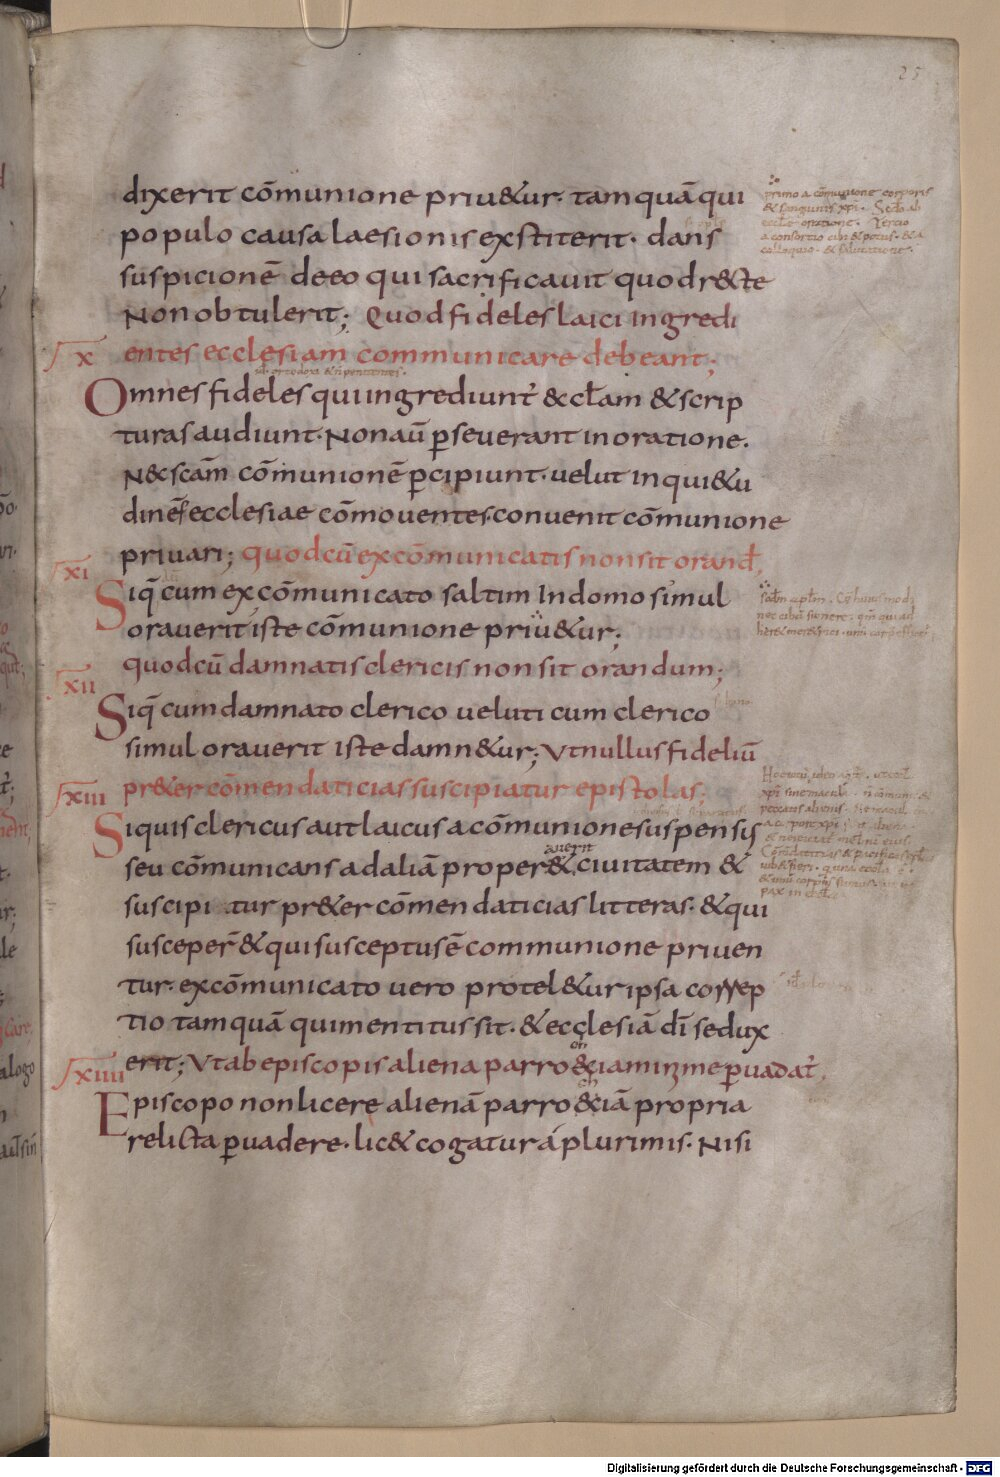 25
dixerit cōmunione priu&ur. tamquā qui
populo causa laesionis exstiterit. dans
suspicionē deeo qui sacrificauit quod r&te
Non obtulerit; Quod fideles laici ingredi
X entes ecclesiam communicare debeant;
Omnes fideles qui ingrediunt̉ &cl̄am & scrip
turas audiunt. Non aū p̱seuerant in oratione.
N&c scām cōmunionē p̱cipiunt. uelut inqui&u
dinēs ecclesiae cōmouentes. conuenit cōmunione
priuari; quod cū excōmunicatis non sit orand̄,
XI Siq̄ cum excōmunicato saltim In domo simul
orauerit iste cōmunione priu&ur;
quod cū damnatis clericis non sit orandum;
XII Siq̄ cum damnato clerico ueluti cum clerico
simul orauerit iste damn&ur; Ut nullus fideliū
XIII pr&er cōmendaticias suscipiatur epistolas;
Siquis clericus aut laicus a cōmunione suspensis
auerit
seu cōmunicans ad aliā proper& ciuitatem &
suscipi tur pr&er cōmendaticias litteras. & qui
susceper̄ & qui susceptus ē communione priuen
tur. excōmunicato uero protel&ur ipsa correp
tio tamquā qui mentitus sit. & ecclesiā dī sedux
XIIII erit; Ut ab episcopis aliena parro&cia minime p̱uadat̉.
Episcopo non licere alienā parro&iā propria
relicta p̱uadere. lic& cogatur á plurimis. Nisi
primo a cōmunione corporis
& sanguinis xp̄i.
eccl̄e oratione. Tercio
a consortio cibi & potus. & a
colloquio. & salutatione.
Digitalisierung gefördert durch die Deutsche Forschungsgemeinschaft - DFG